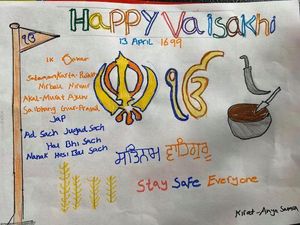 HAPPY Vaisakhi
13 April 1699
ੴ
ੴ
IK Oankar
Satanam Karta-Purakh
Nirbau Nirvair
Akal-Murat Ajuni
Saibhang Gur-Prasad
JAP
Ad Sach Jugad Sach
Hai Bhi Sach
Nanak Hosi Bhi Sach
ਸਤਿਨਾਮ ਵਾਹਿਗੁਰੂ
Stay Safe Everyone